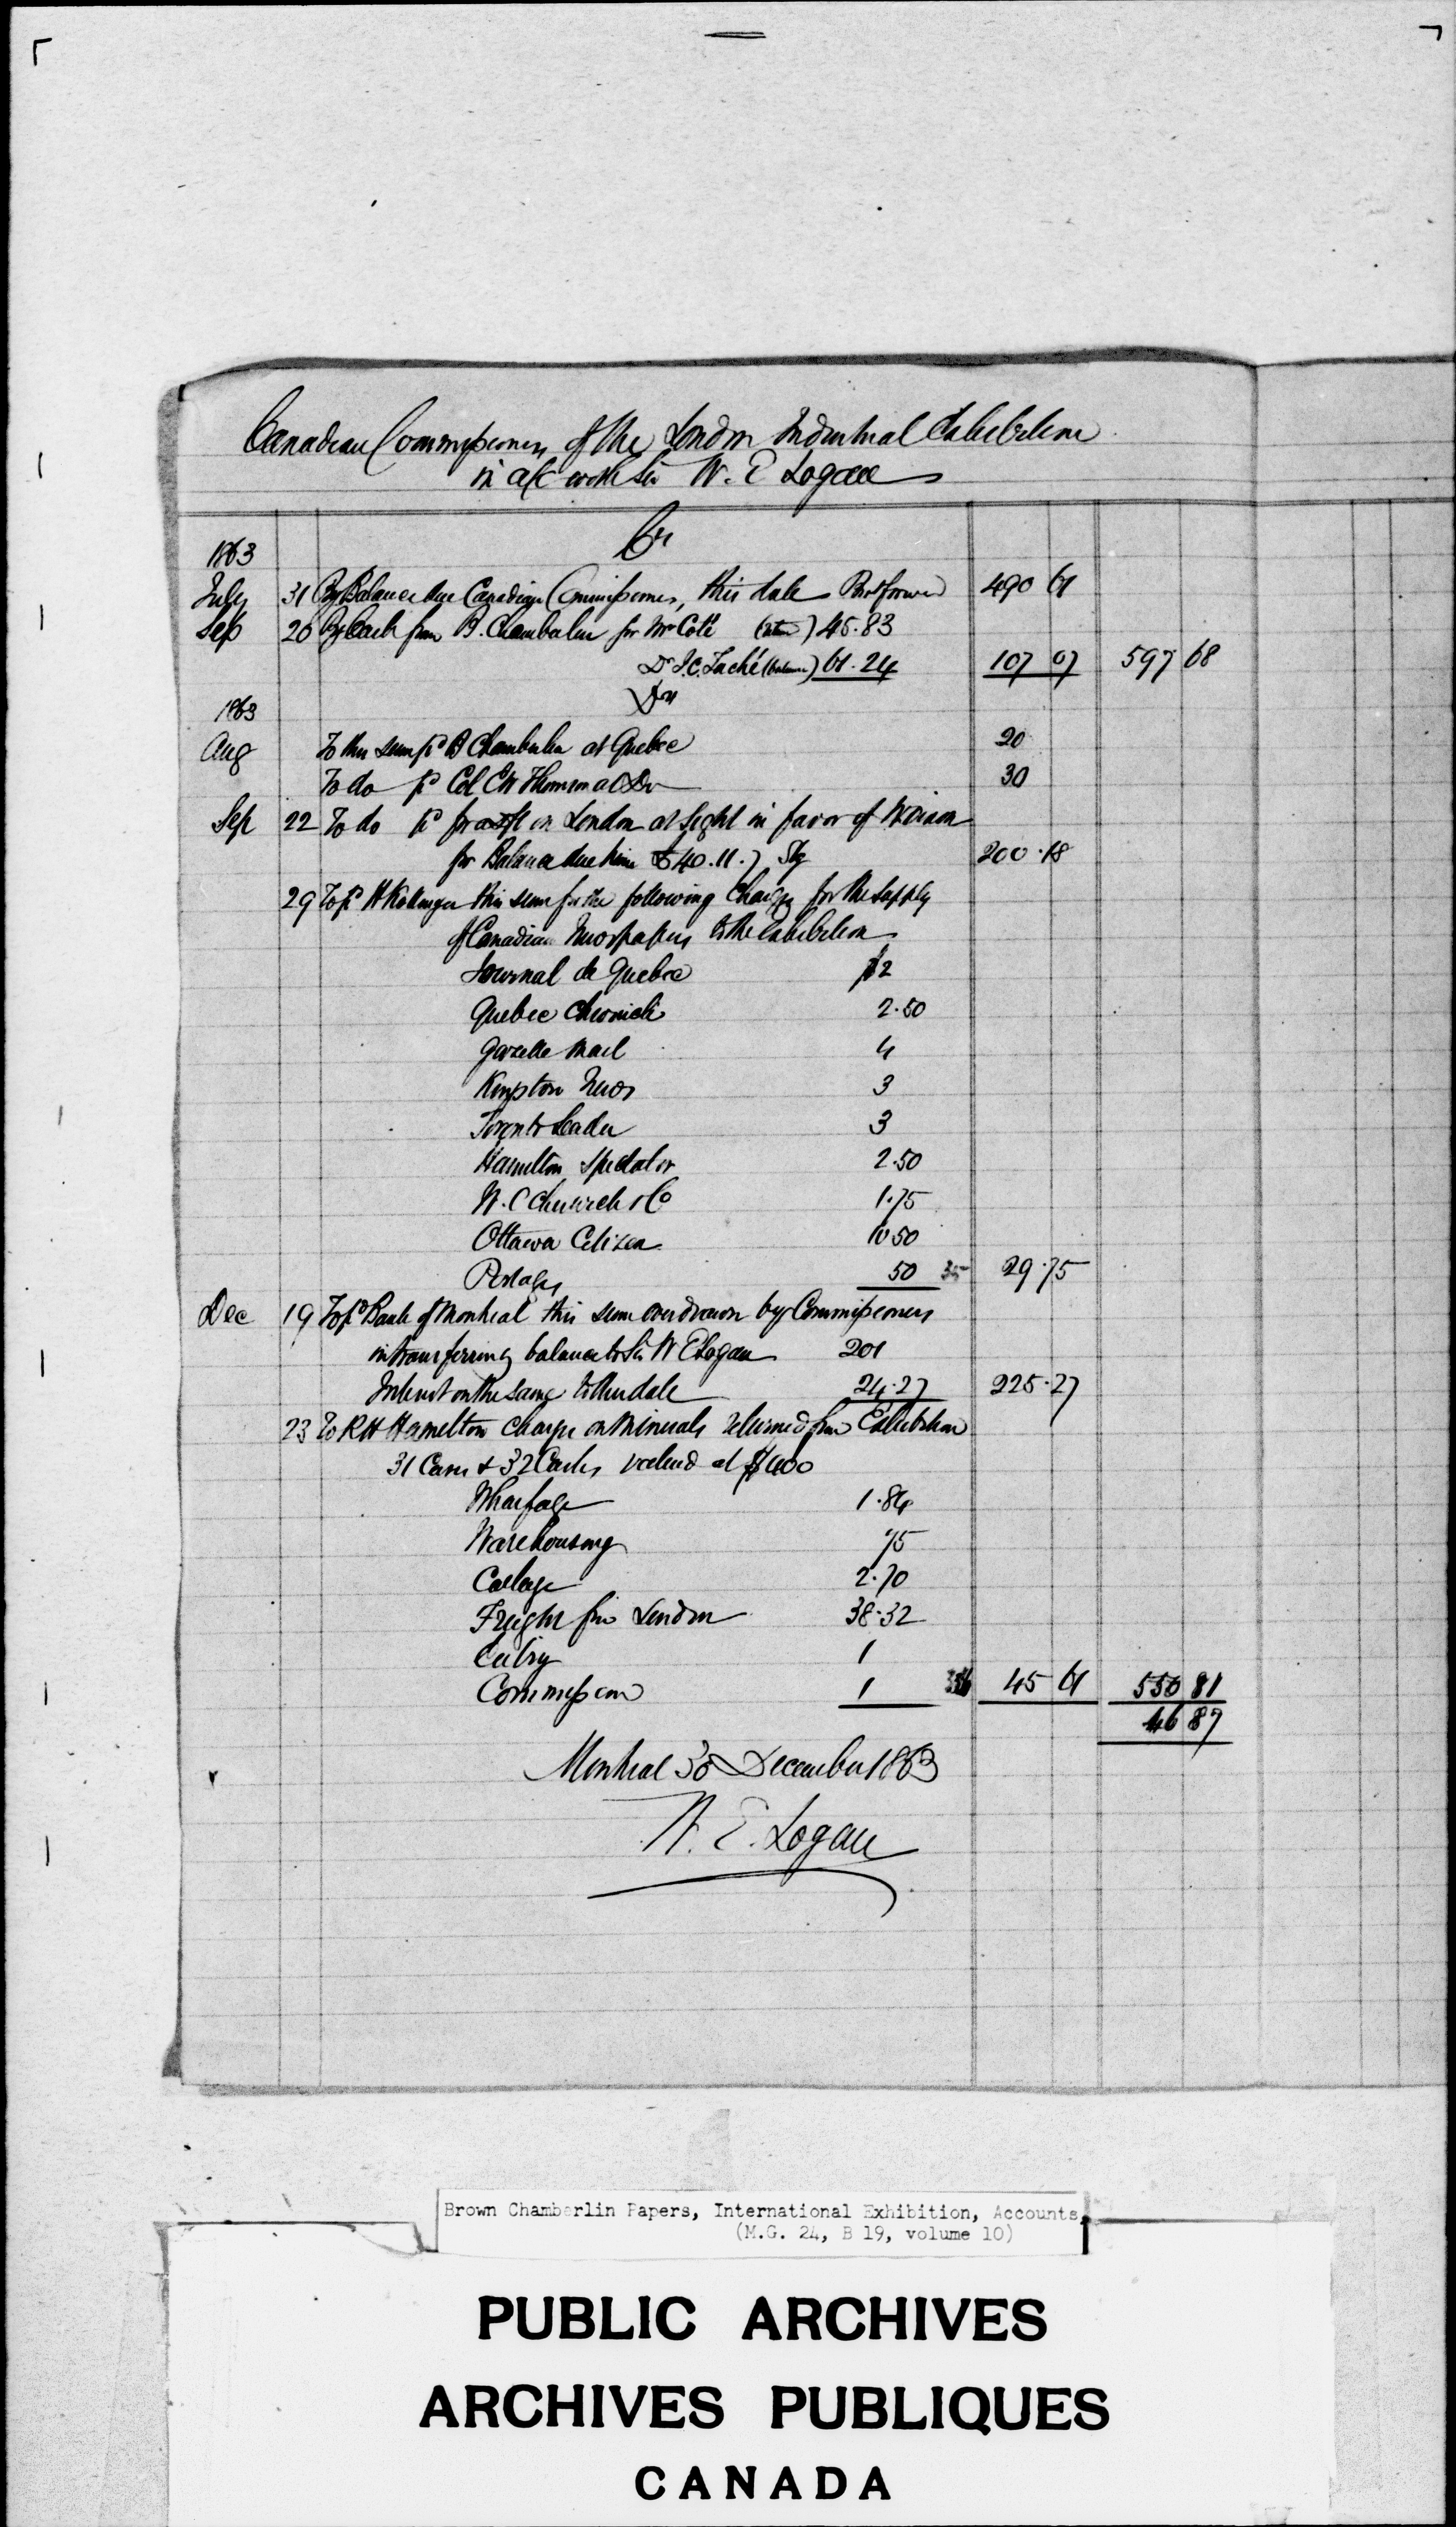 Canadian Commissioners of the London Industrial Exhibition
in a/c with Sir W. E Logan
Cr
1863
July 31 By Balance due Canadian Commissioners, this date 490 61
Sep 26 By Cash from B. Chamberlin for Mr Coté 45.83
Dr J.C. Taché (balance) 61.24 107 07 597 68
Dr
1863
Aug To this sum pd B Chamberlin at Quebec 20
To do pd Col EW Thomson a 30
Sep 22 To do pd for a dft on London at Sight in favor of
for Balance due him £40.11.7 Stg 200.18
29 To pd H this sum for the following Charges for the supply
of Canadian Newspapers to the Exhibition
Journal de Quebec $2
Quebec Chronicle 2.50
Gazette Mail 4
Kingston News 3
Toronto Leader 3
Hamilton Spectator 2.50
W. C Chewett & Co 1.75
Ottawa Citizen 10 50
Postages 50 35 29.75
Dec 19 To pd Bank of Montreal this sum overdrawn by Commissioners
in transferring balance to Sir W E Logan 201
Interest on the same to this date 24.27 225.27
23 To R H Hamelton charges on Minerals returned from Exhibition
31 Cases & 32 Casks valued at $400
Wharfage 1.84
Warehousing 75
Cartage 2.70
Freight from London 38.32
Entry 1
Commission 1 45 61 550 81
46 87
Montreal 30 December 1863
W. E. Logan
Brown Chamberlin Papers, International Exhibition, Accounts,
(M.G. 24, B 19, volume 10)
PUBLIC ARCHIVES
ARCHIVES PUBLIQUES
CANADA